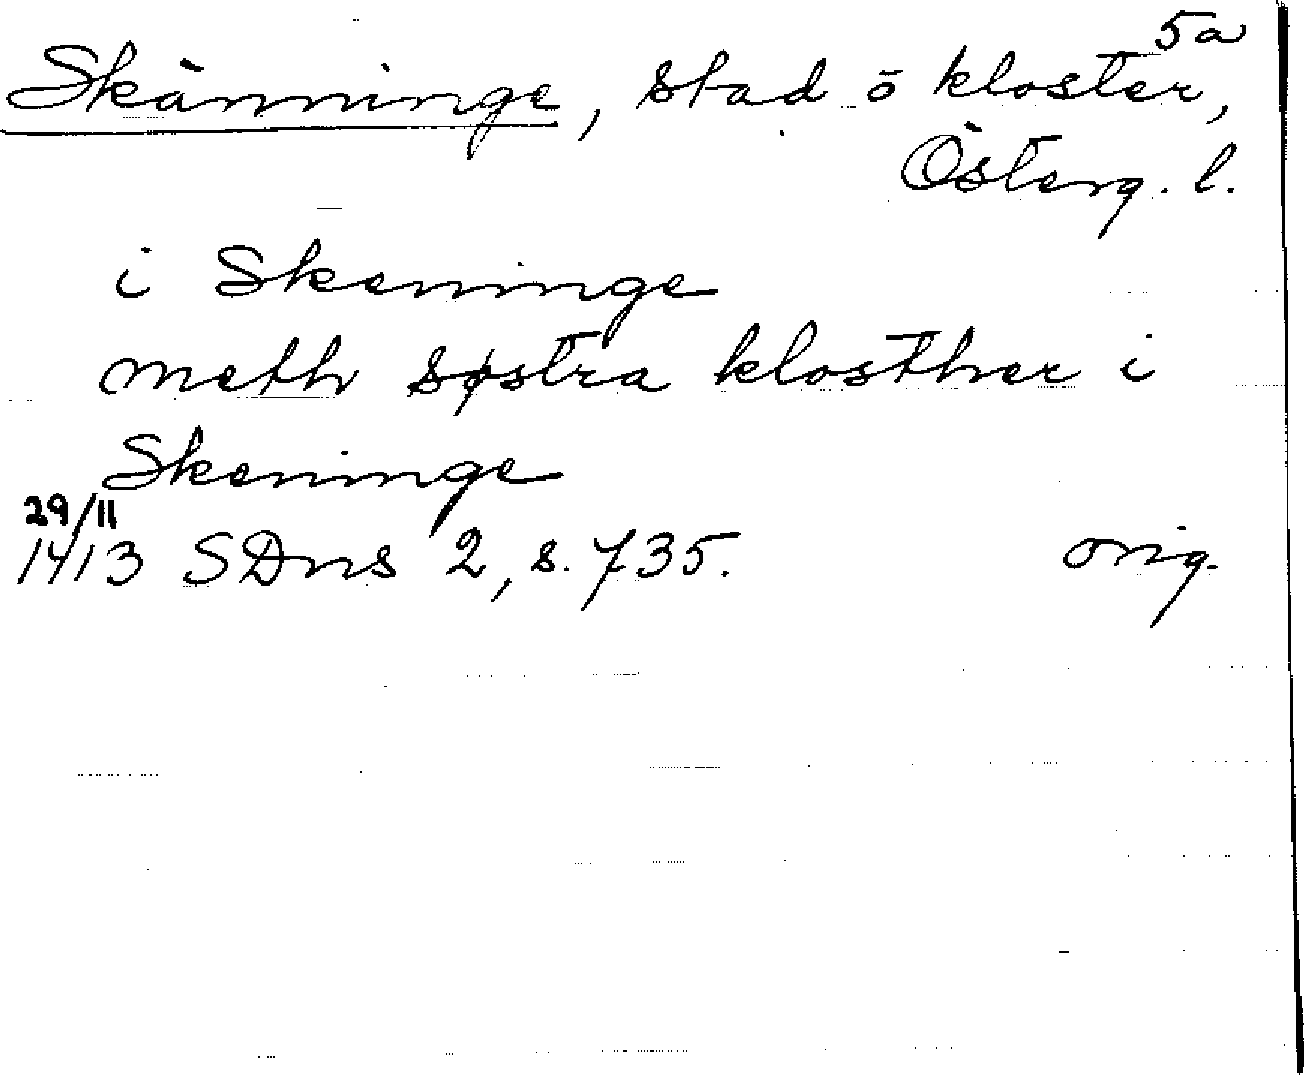 5a
Skänninge, stad o kloster,
Österg. l.
i Skeninge
meth søstra klosther i
Skeninge
29/11
1413 SDns 2, s. 735. orig.